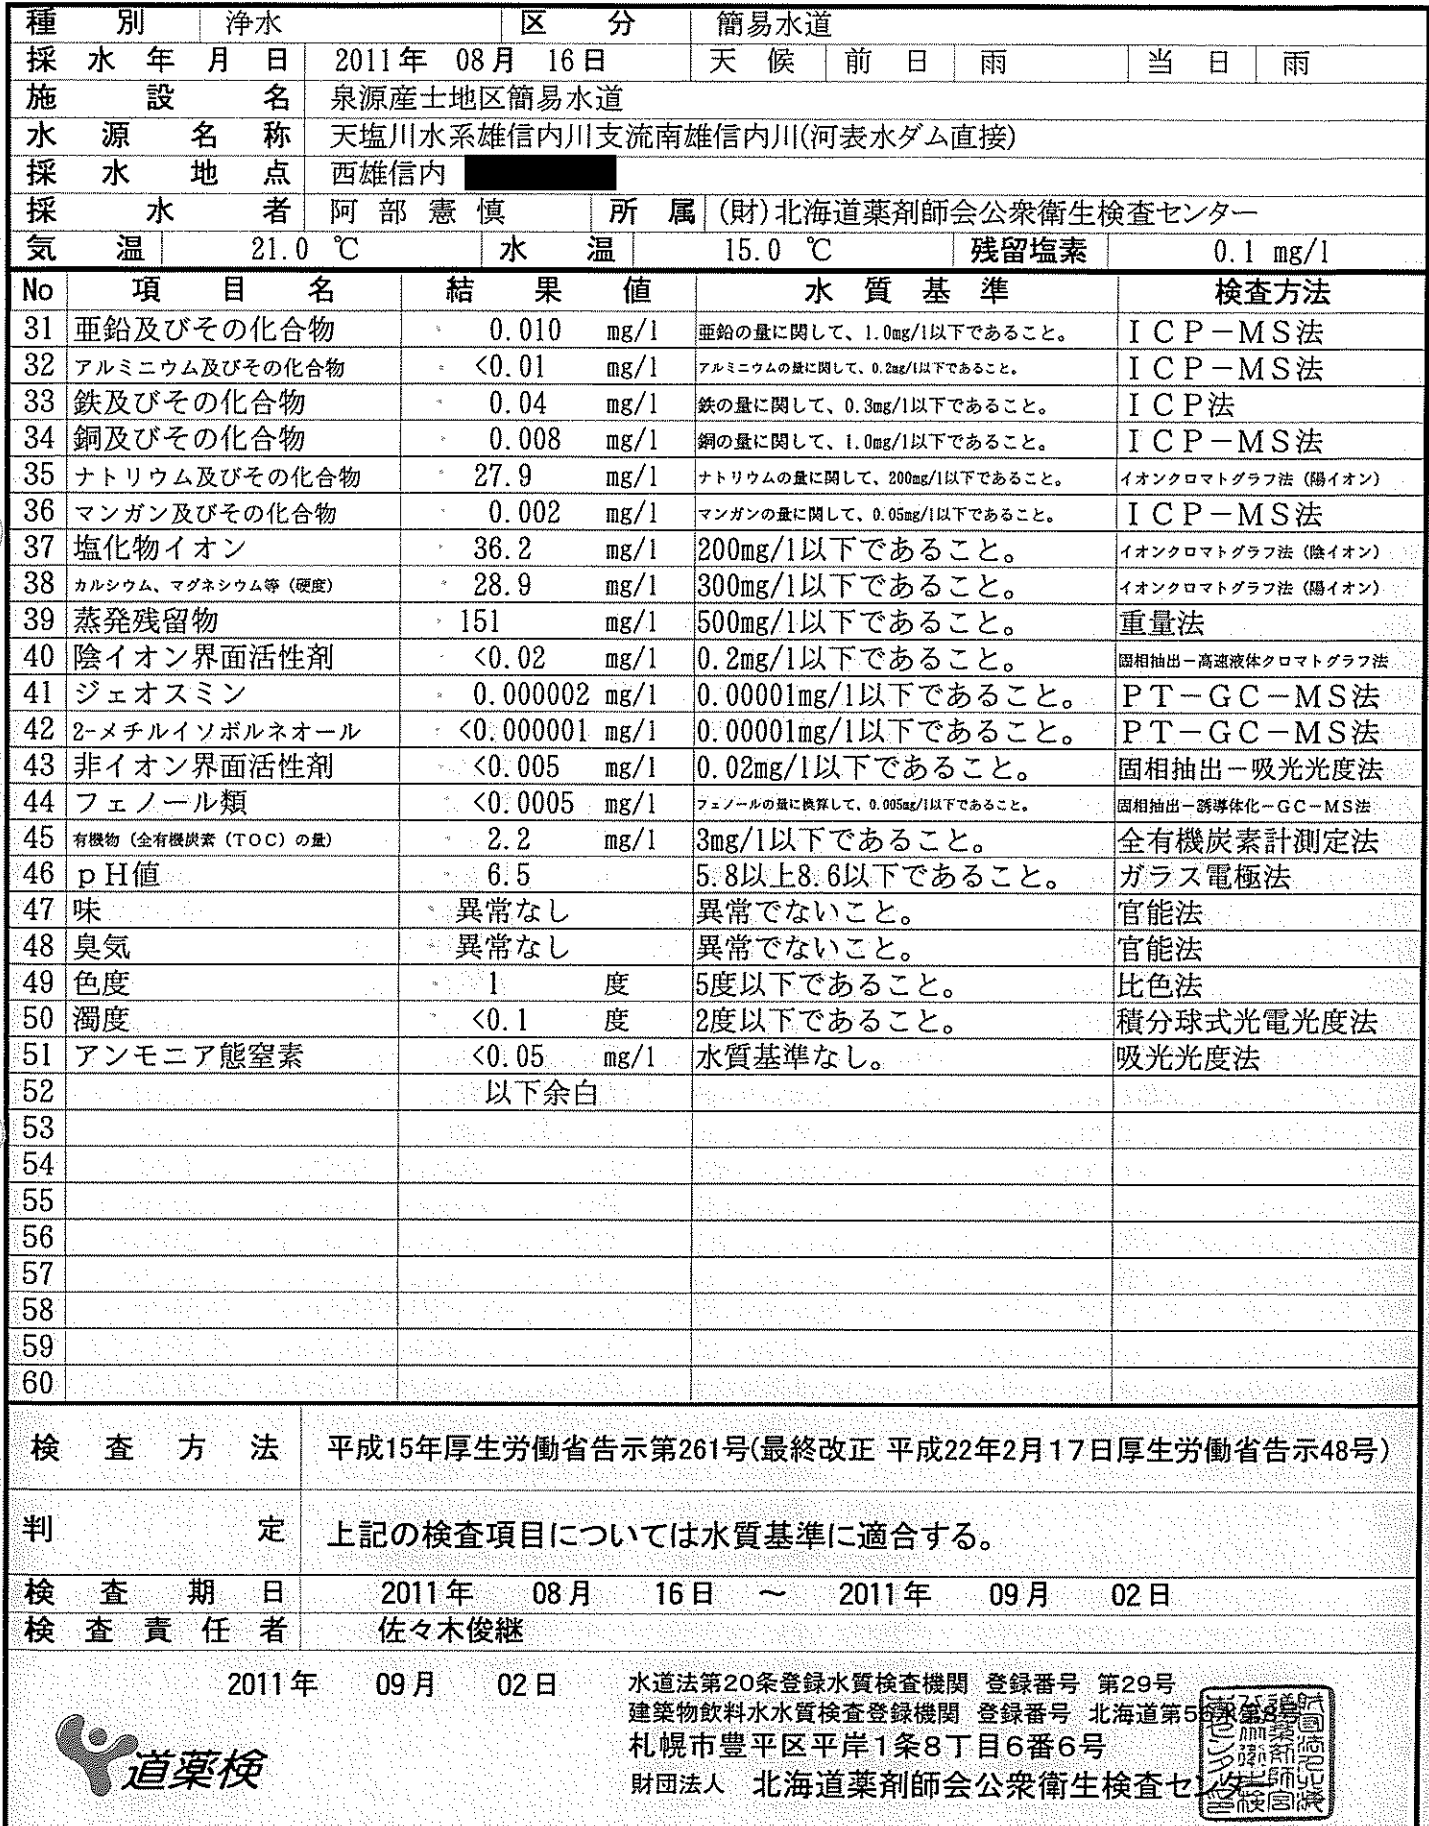 種別 浄水 区分 簡易水道
採水年月日 2011年 08月 16日 天候 前日 雨 当日 雨
施設名 泉源産士地区簡易水道
水源名称 天塩川水系雄信内川支流南雄信内川(河表水ダム直接)
採水地点 西雄信内
採水者 阿部憲慎 所属 (財)北海道薬剤師会公衆衛生検査センター
気温 21.0 ℃ 水温 15.0 ℃ 残留塩素 0.1 mg/l
No 項目名 結果値 水質基準 検査方法
31 亜鉛及びその化合物 0.010 mg/l 亜鉛の量に関して、1.0mg/l以下であること。 ICP-MS法
32 アルミニウム及びその化合物 <0.01 mg/l アルミニウムの量に関して、0.2mg/l以下であること。 ICP-MS法
33 鉄及びその化合物 0.04 mg/l 鉄の量に関して、0.3mg/l以下であること。 ICP法
34 銅及びその化合物 0.008 mg/l 銅の量に関して、1.0mg/l以下であること。 ICP-MS法
35 ナトリウム及びその化合物 27.9 mg/l ナトリウムの量に関して、200mg/l以下であること。 イオンクロマトグラフ法(陽イオン)
36 マンガン及びその化合物 0.002 mg/l マンガンの量に関して、0.05mg/l以下であること。 ICP-MS法
37 塩化物イオン 36.2 mg/l 200mg/l以下であること。 イオンクロマトグラフ法(陰イオン)
38 カルシウム、マグネシウム等(硬度) 28.9 mg/l 300mg/l以下であること。 イオンクロマトグラフ法(陽イオン)
39 蒸発残留物 151 mg/l 500mg/l以下であること。 重量法
40 陰イオン界面活性剤 <0.02 mg/l 0.2mg/l以下であること。 固相抽出-高速液体クロマトグラフ法
41 ジェオスミン 0.000002 mg/l 0.00001mg/l以下であること。 PT-GC-MS法
42 2-メチルイソボルネオール <0.000001 mg/l 0.00001mg/l以下であること。 PT-GC-MS法
43 非イオン界面活性剤 <0.005 mg/l 0.02mg/l以下であること。 固相抽出-吸光光度法
44 フェノール類 <0.0005 mg/l フェノールの量に換算して、0.005mg/l以下であること。 固相抽出-誘導体化-GC-MS法
45 有機物(全有機炭素(TOC)の量) 2.2 mg/l 3mg/l以下であること。 全有機炭素計測定法
46 pH値 6.5 5.8以上8.6以下であること。 ガラス電極法
47 味 異常なし 異常でないこと。 官能法
48 臭気 異常なし 異常でないこと。 官能法
49 色度 1 度 5度以下であること。 比色法
50 濁度 <0.1 度 2度以下であること。 積分球式光電光度法
51 アンモニア態窒素 <0.05 mg/l 水質基準なし。 吸光光度法
52 以下余白
53
54
55
56
57
58
59
60
検査方法 平成15年厚生労働省告示第261号(最終改正 平成22年2月17日厚生労働省告示48号)
判定 上記の検査項目については水質基準に適合する。
検査期日 2011年 08月 16日 ~ 2011年 09月 02日
検査責任者 佐々木俊継
2011年 09月 02日
水道法第20条登録水質検査機関 登録番号 第29号
建築物飲料水水質検査登録機関 登録番号 北海道第56水第8号
札幌市豊平区平岸1条8丁目6番6号
財団法人 北海道薬剤師会公衆衛生検査センター
道薬検